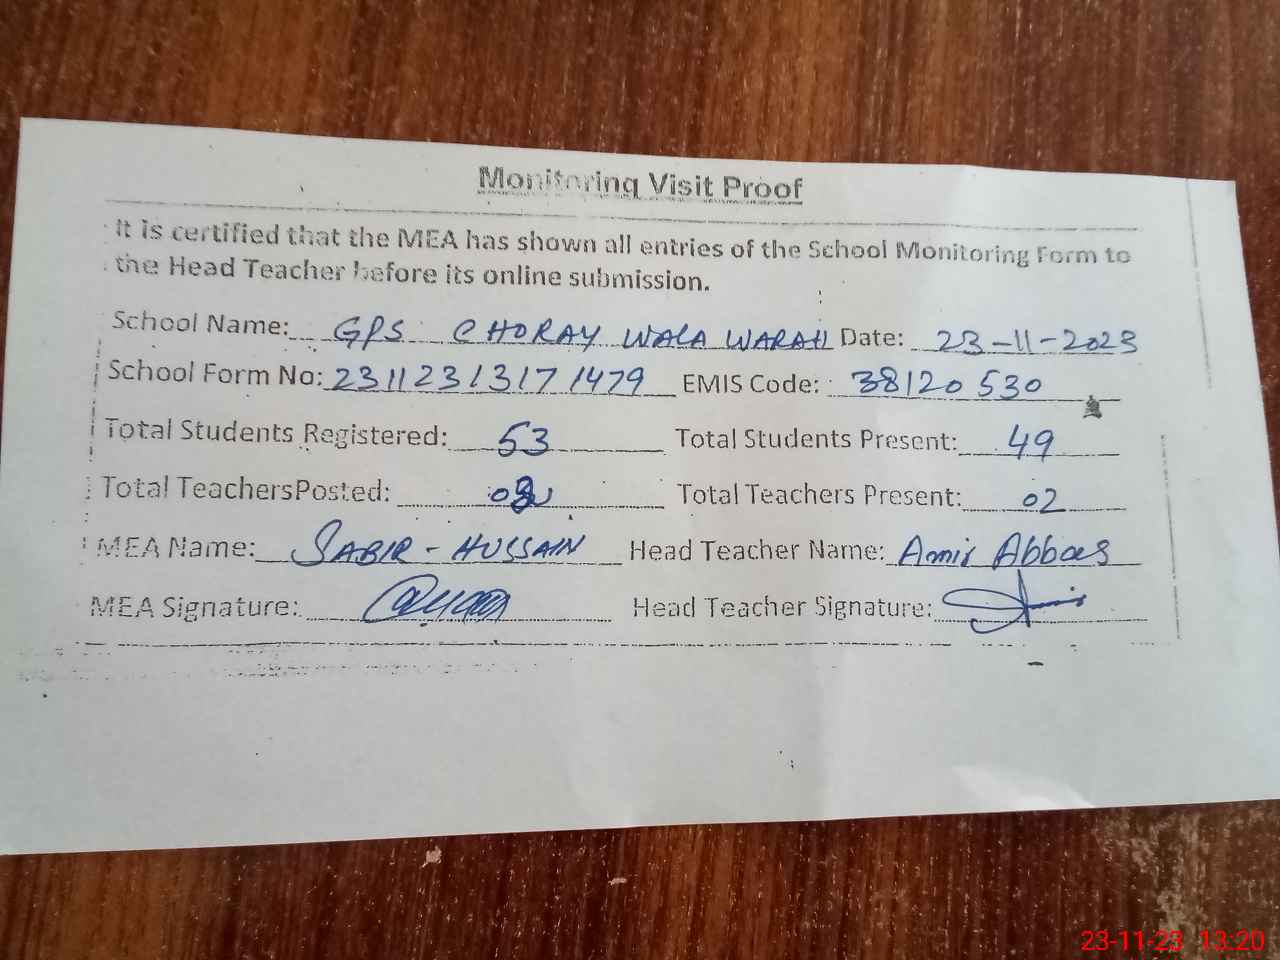 Monitoring Visit Proof
It is certified that the MEA has shown all entries of the School Monitoring Form to
the Head Teacher before its online submission.
School Name: GPS CHORAY WALA WARAH Date: 23-11-2023
School Form No: 23112313171479 EMIS Code: 38120530
Total Students Registered: 53 Total Students Present: 49
Total TeachersPosted: Total Teachers Present: 02
MEA Name: SABIR-HUSSAIN Head Teacher Name: Amir Abbas
MEA Signature: Head Teacher Signature:
23-11-23 13:20